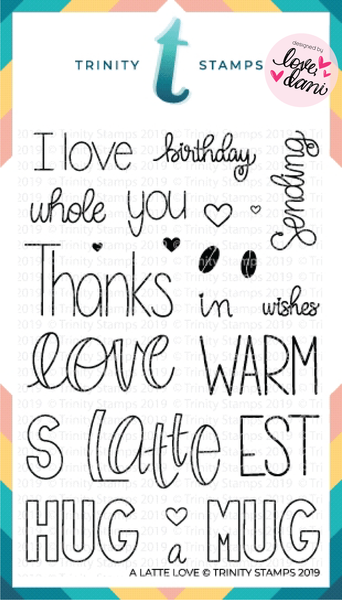 TRINITY t STAMPS
designed by
love, dani
I love birthday
Sending
whole you
Thanks in wishes
love WARM
S Latte EST
HUG a MUG
A LATTE LOVE © TRINITY STAMPS 2019
© Trinity Stamps 2019